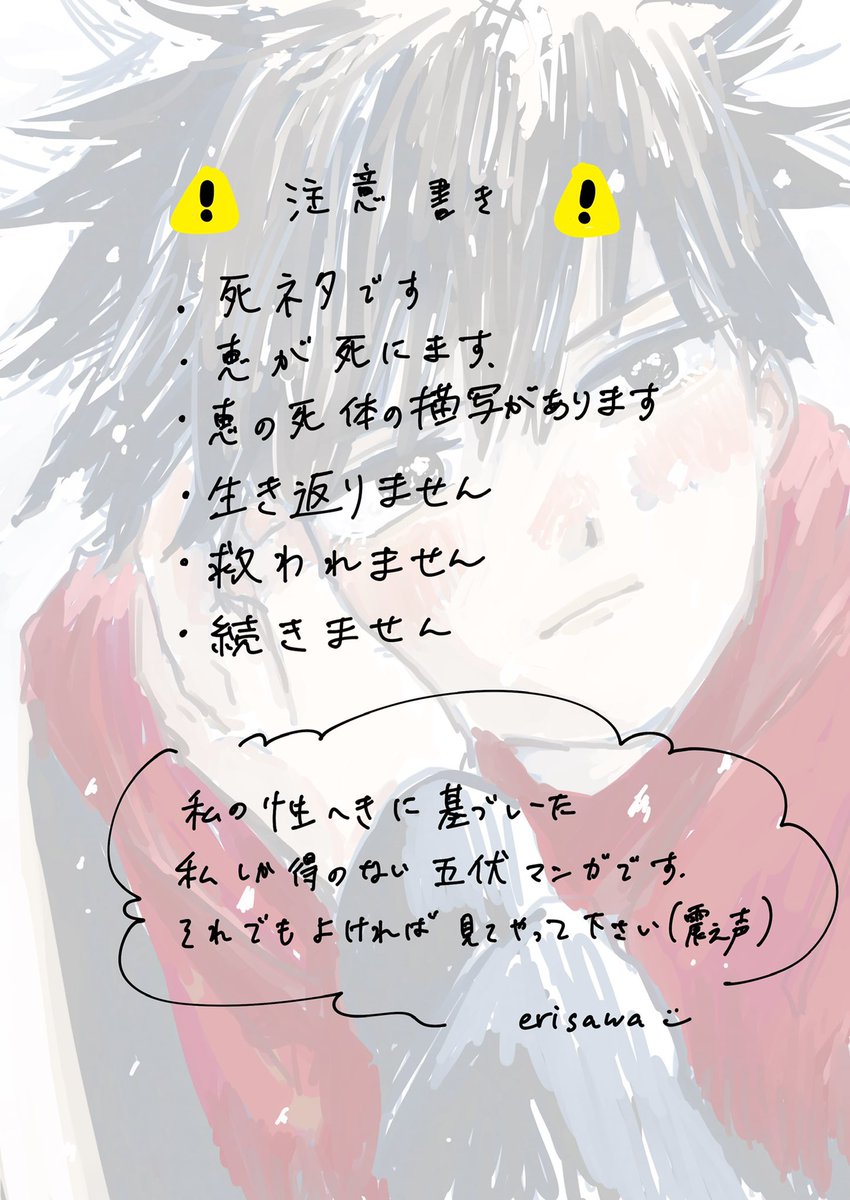 ! 注意書き !
・死ネタです
・恵が死にます。
・恵の死体の描写があります
・生き返りません
・救われません
・続きません
私の性へきに基づいた
私しか得のない五伏マンガです。
それでもよければ見てやって下さい(震え声)
erisawa